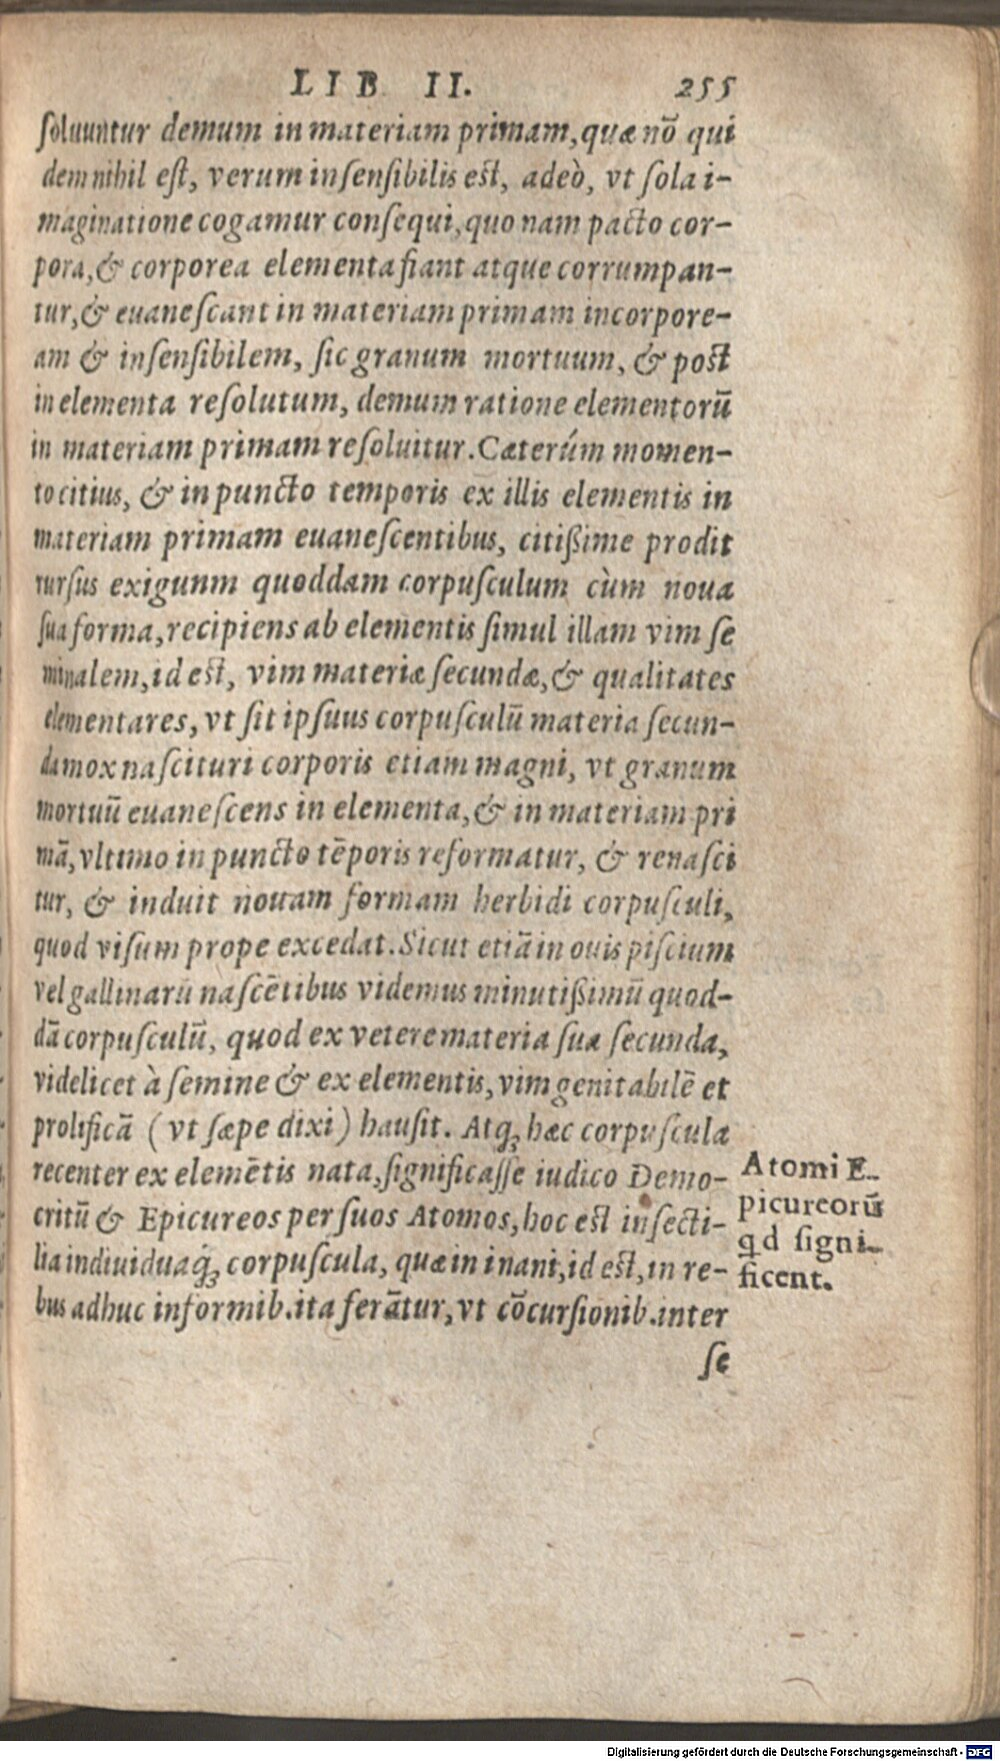 LIB II. 255
ſoluuntur demum in materiam primam, quæ nō qui
dem nihil eſt, verum inſenſibilis eſt, adeò, vt ſola i-
maginatione cogamur conſequi, quo nam pacto cor-
pora, & corporea elementa fiant atque corrumpan-
tur, & euaneſcant in materiam primam incorpore-
am & inſenſibilem, ſic granum mortuum, & poſt
in elementa reſolutum, demum ratione elementorū
in materiam primam reſoluitur. Cæterúm momen-
to citius, & in puncto temporis ex illis elementis in
materiam primam euaneſcentibus, citißime prodit
rurſus exigunm quoddam corpuſculum cùm noua
ſua forma, recipiens ab elementis ſimul illam vim ſe
minalem, id eſt, vim materiæ ſecundæ, & qualitates
elementares, vt ſit ipſuus corpuſculū materia ſecun-
da mox naſcituri corporis etiam magni, vt granum
mortuū euaneſcens in elementa, & in materiam pri
mā, vltimo in puncto tēporis reformatur, & renaſci
tur, & induit nouam formam herbidi corpuſculi,
quod viſum prope excedat. Sicut etiā in ouis piſcium
vel gallinarū naſcētibus videmus minutißimū quod-
dā corpuſculū, quod ex vetere materia ſua ſecunda,
videlicet à ſemine & ex elementis, vim genitabilē et
prolificā (vt ſæpe dixi) hauſit. Atq; hæc corpuſcula
recenter ex elemētis nata, ſignificaſſe iudico Demo-
critū & Epicureos per ſuos Atomos, hoc eſt inſecti-
lia indiuiduaq́; corpuſcula, quæ in inani, id eſt, in re-
bus adhuc informib. ita ferātur, vt cōcurſionib. inter
ſe
Atomi E-
picureorū
qd ſigni-
ficent.
Digitalisierung gefördert durch die Deutsche Forschungsgemeinschaft - DFG